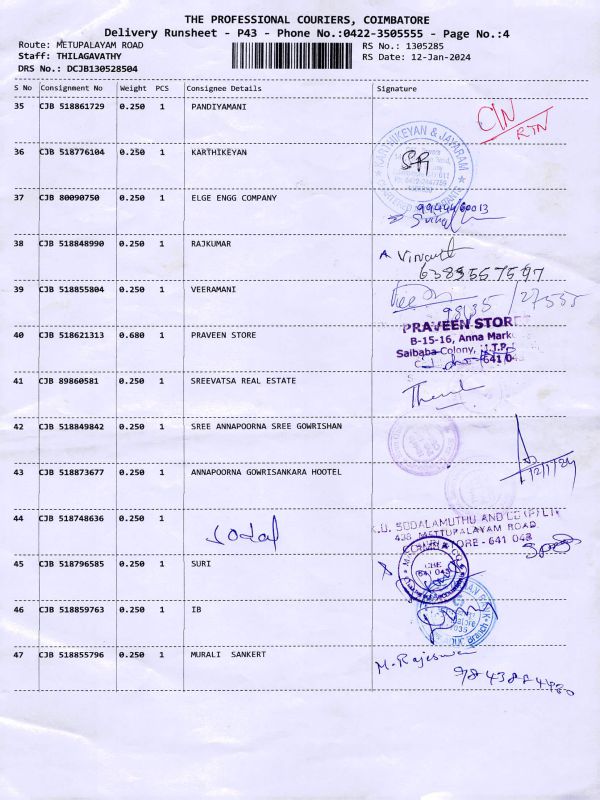 THE PROFESSIONAL COURIERS, COIMBATORE
Delivery Runsheet - P43 - Phone No.:0422-3505555 - Page No.:4
Route: METUPALAYAM ROAD
RS No.: 1305285
Staff: THILAGAVATHY
RS Date: 12-Jan-2024
DRS No.: DCJB130528504
S No Consignment No Weight PCS Consignee Details Signature
35 CJB 518861729 0.250 1 PANDIYAMANI
C/N
RTN
36 CJB 518776104 0.250 1 KARTHIKEYAN
KARTHIKEYAN & JAYARAM
37 CJB 80090750 0.250 1 ELGE ENGG COMPANY
9944460013
38 CJB 518848990 0.250 1 RAJKUMAR
6383557597
39 CJB 518855804 0.250 1 VEERAMANI
98435/27555
40 CJB 518621313 0.680 1 PRAVEEN STORE
PRAVEEN STORE
B-15-16, Anna Mark
Saibaba Colony, I.T.P.
641 043
41 CJB 89860581 0.250 1 SREEVATSA REAL ESTATE
42 CJB 518849842 0.250 1 SREE ANNAPOORNA SREE GOWRISHAN
43 CJB 518873677 0.250 1 ANNAPOORNA GOWRISANKARA HOOTEL
12/1/24
44 CJB 518748636 0.250 1
SODALAMUTHU AND CO
METTUPALAYAM ROAD,
- 641 043
45 CJB 518796585 0.250 1 SURI
CBE
641 043
46 CJB 518859763 0.250 1 IB
47 CJB 518855796 0.250 1 MURALI SANKERT
M. Rajeswari